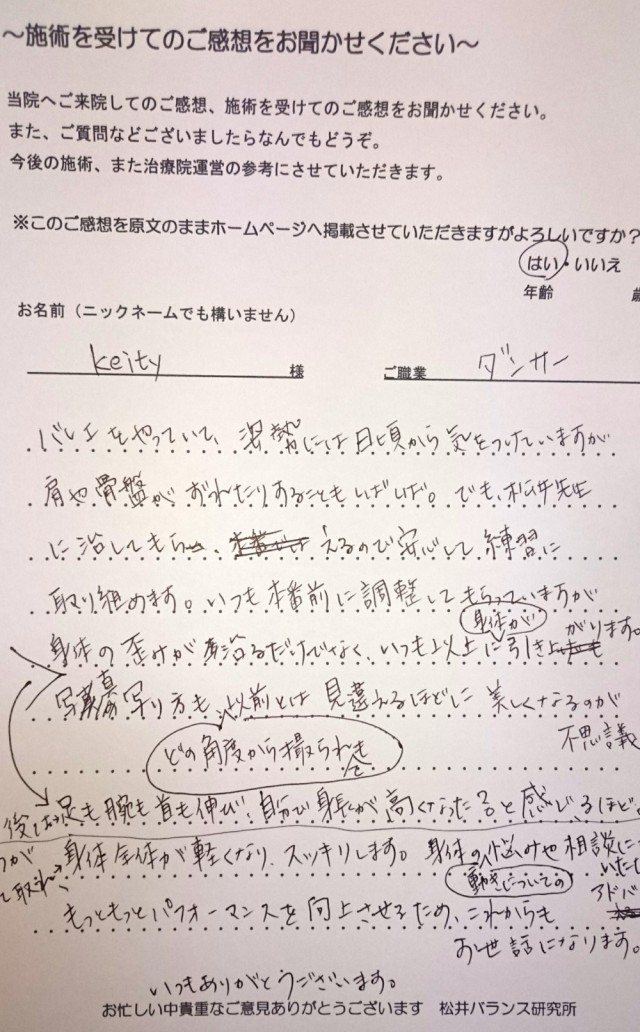 ～施術を受けてのご感想をお聞かせください～
当院へご来院してのご感想、施術を受けてのご感想をお聞かせください。
また、ご質問などございましたらなんでもどうぞ。
今後の施術、また治療院運営の参考にさせていただきます。
※このご感想を原文のままホームページへ掲載させていただきますがよろしいですか?
はい・いいえ
年齢
お名前（ニックネームでも構いません）
keity 様 ご職業 ダンサー
バレエをやっていて、姿勢には日頃から気をつけていますが
肩や骨盤がずれたりすることもしばしば。でも、松井先生
に治してもらえるので安心して練習に
取り組めます。いつも本番前に調整してもらっていますが
身体が
身体の歪みが治るだけでなく、いつも以上に引き上がります。
写真の写り方も、以前とは見違えるほどに美しくなるのが
不思議
どの角度から撮られても
足も腕も首も伸び、自分で身長が高くなった？と感じるほど。
身体全体が軽くなり、スッキリします。身体の悩みや相談に
動きについての
アドバ
もっともっとパフォーマンスを向上させるため、これからも
お世話になります。
いつもありがとうございます。
お忙しい中貴重なご意見ありがとうございます 松井バランス研究所